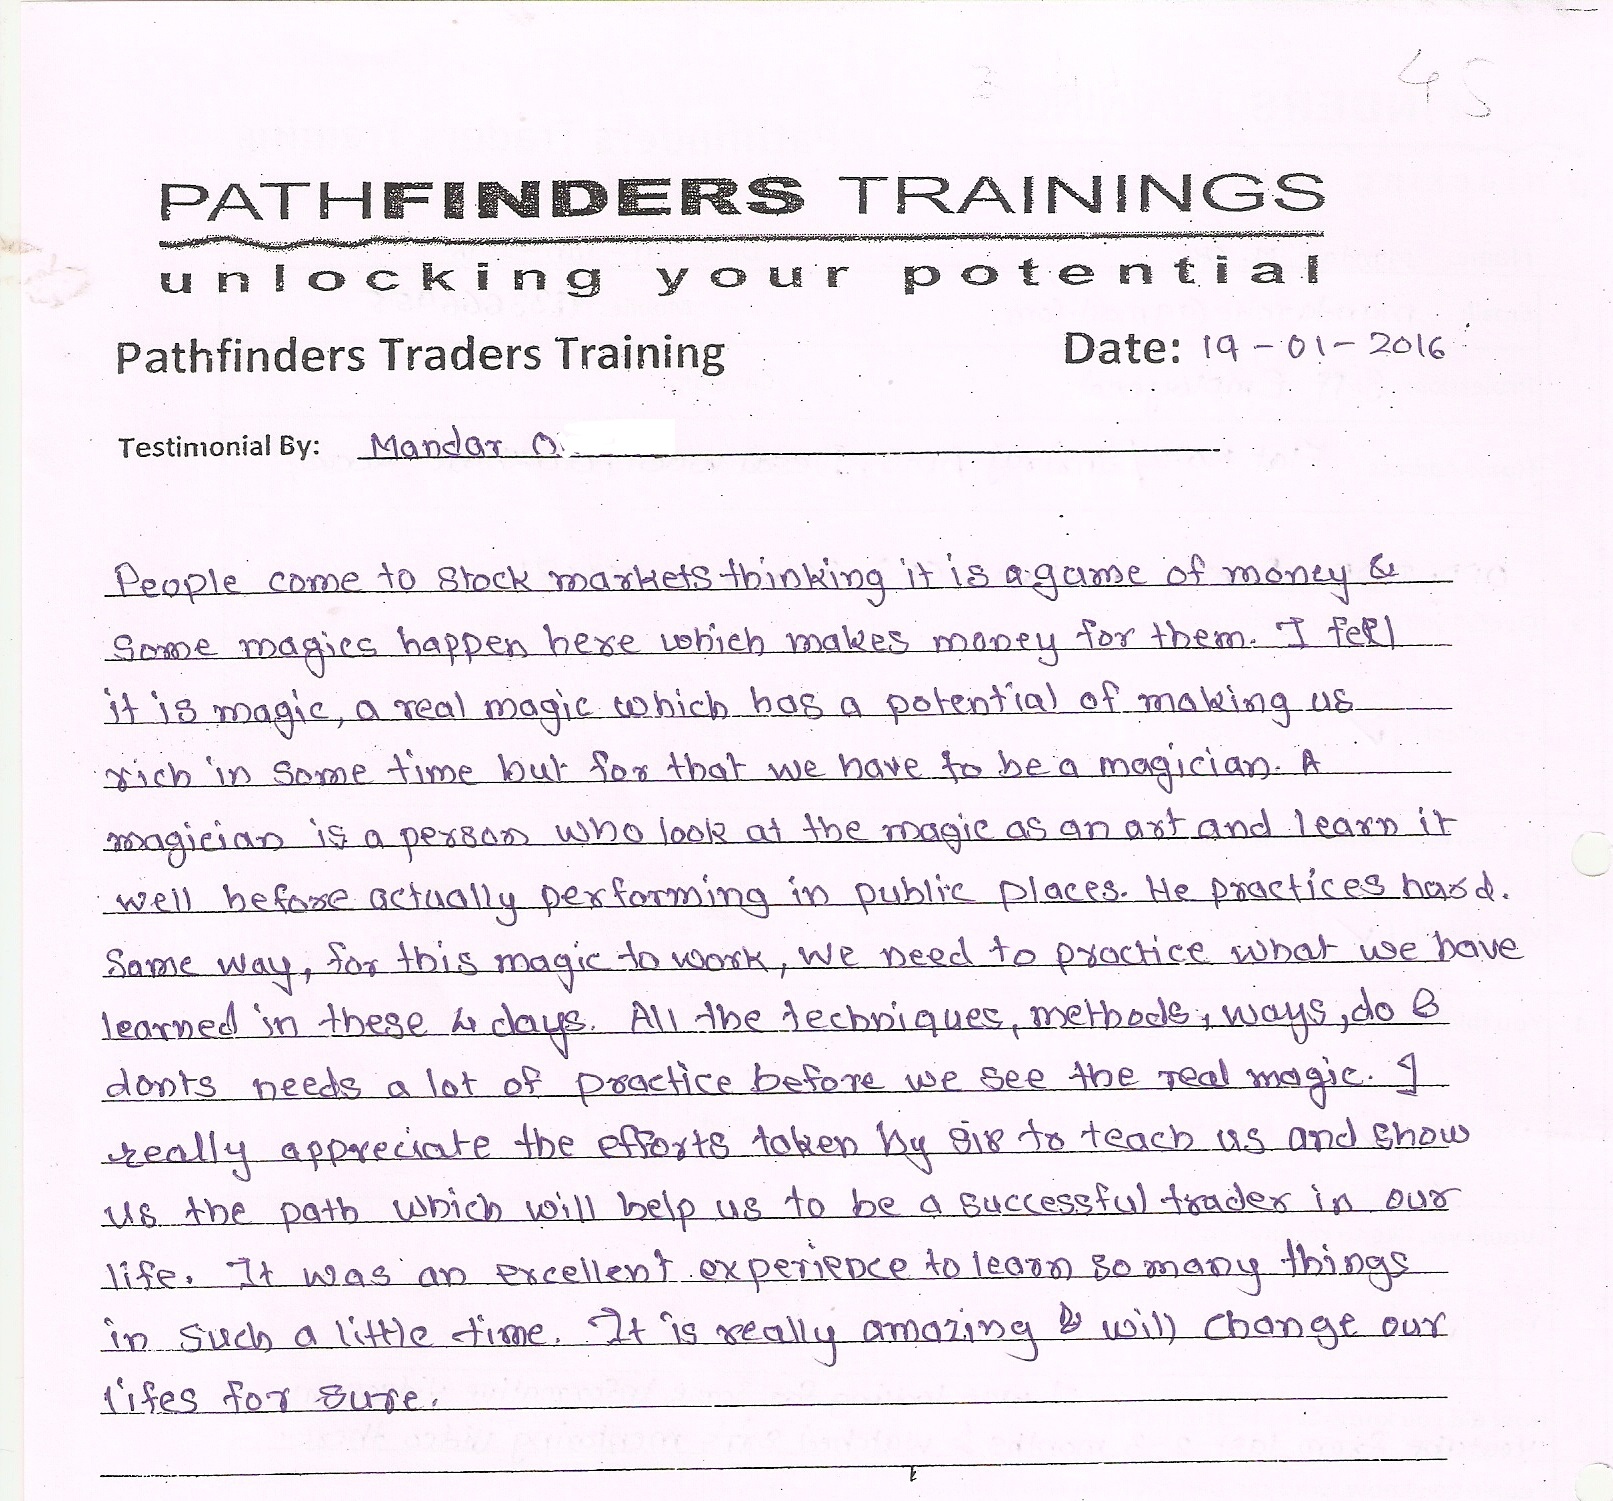 45
PATHFINDERS TRAININGS
unlocking your potential
Pathfinders Traders Training Date: 19-01-2016
Testimonial By: Mandar O.
People come to stock markets thinking it is a game of money &
some magics happen here which makes money for them. I feel
it is magic, a real magic which has a potential of making us
rich in some time but for that we have to be a magician. A
magician is a person who look at the magic as an art and learn it
well before actually performing in public places. He practices hard.
Same way, for this magic to work, we need to practice what we have
learned in these 4 days. All the techniques, methods, ways, do &
donts needs a lot of practice before we see the real magic. I
really appreciate the efforts taken by sir to teach us and show
us the path which will help us to be a successful trader in our
life. It was an excellent experience to learn so many things
in such a little time. It is really amazing & will change our
lifes for sure.